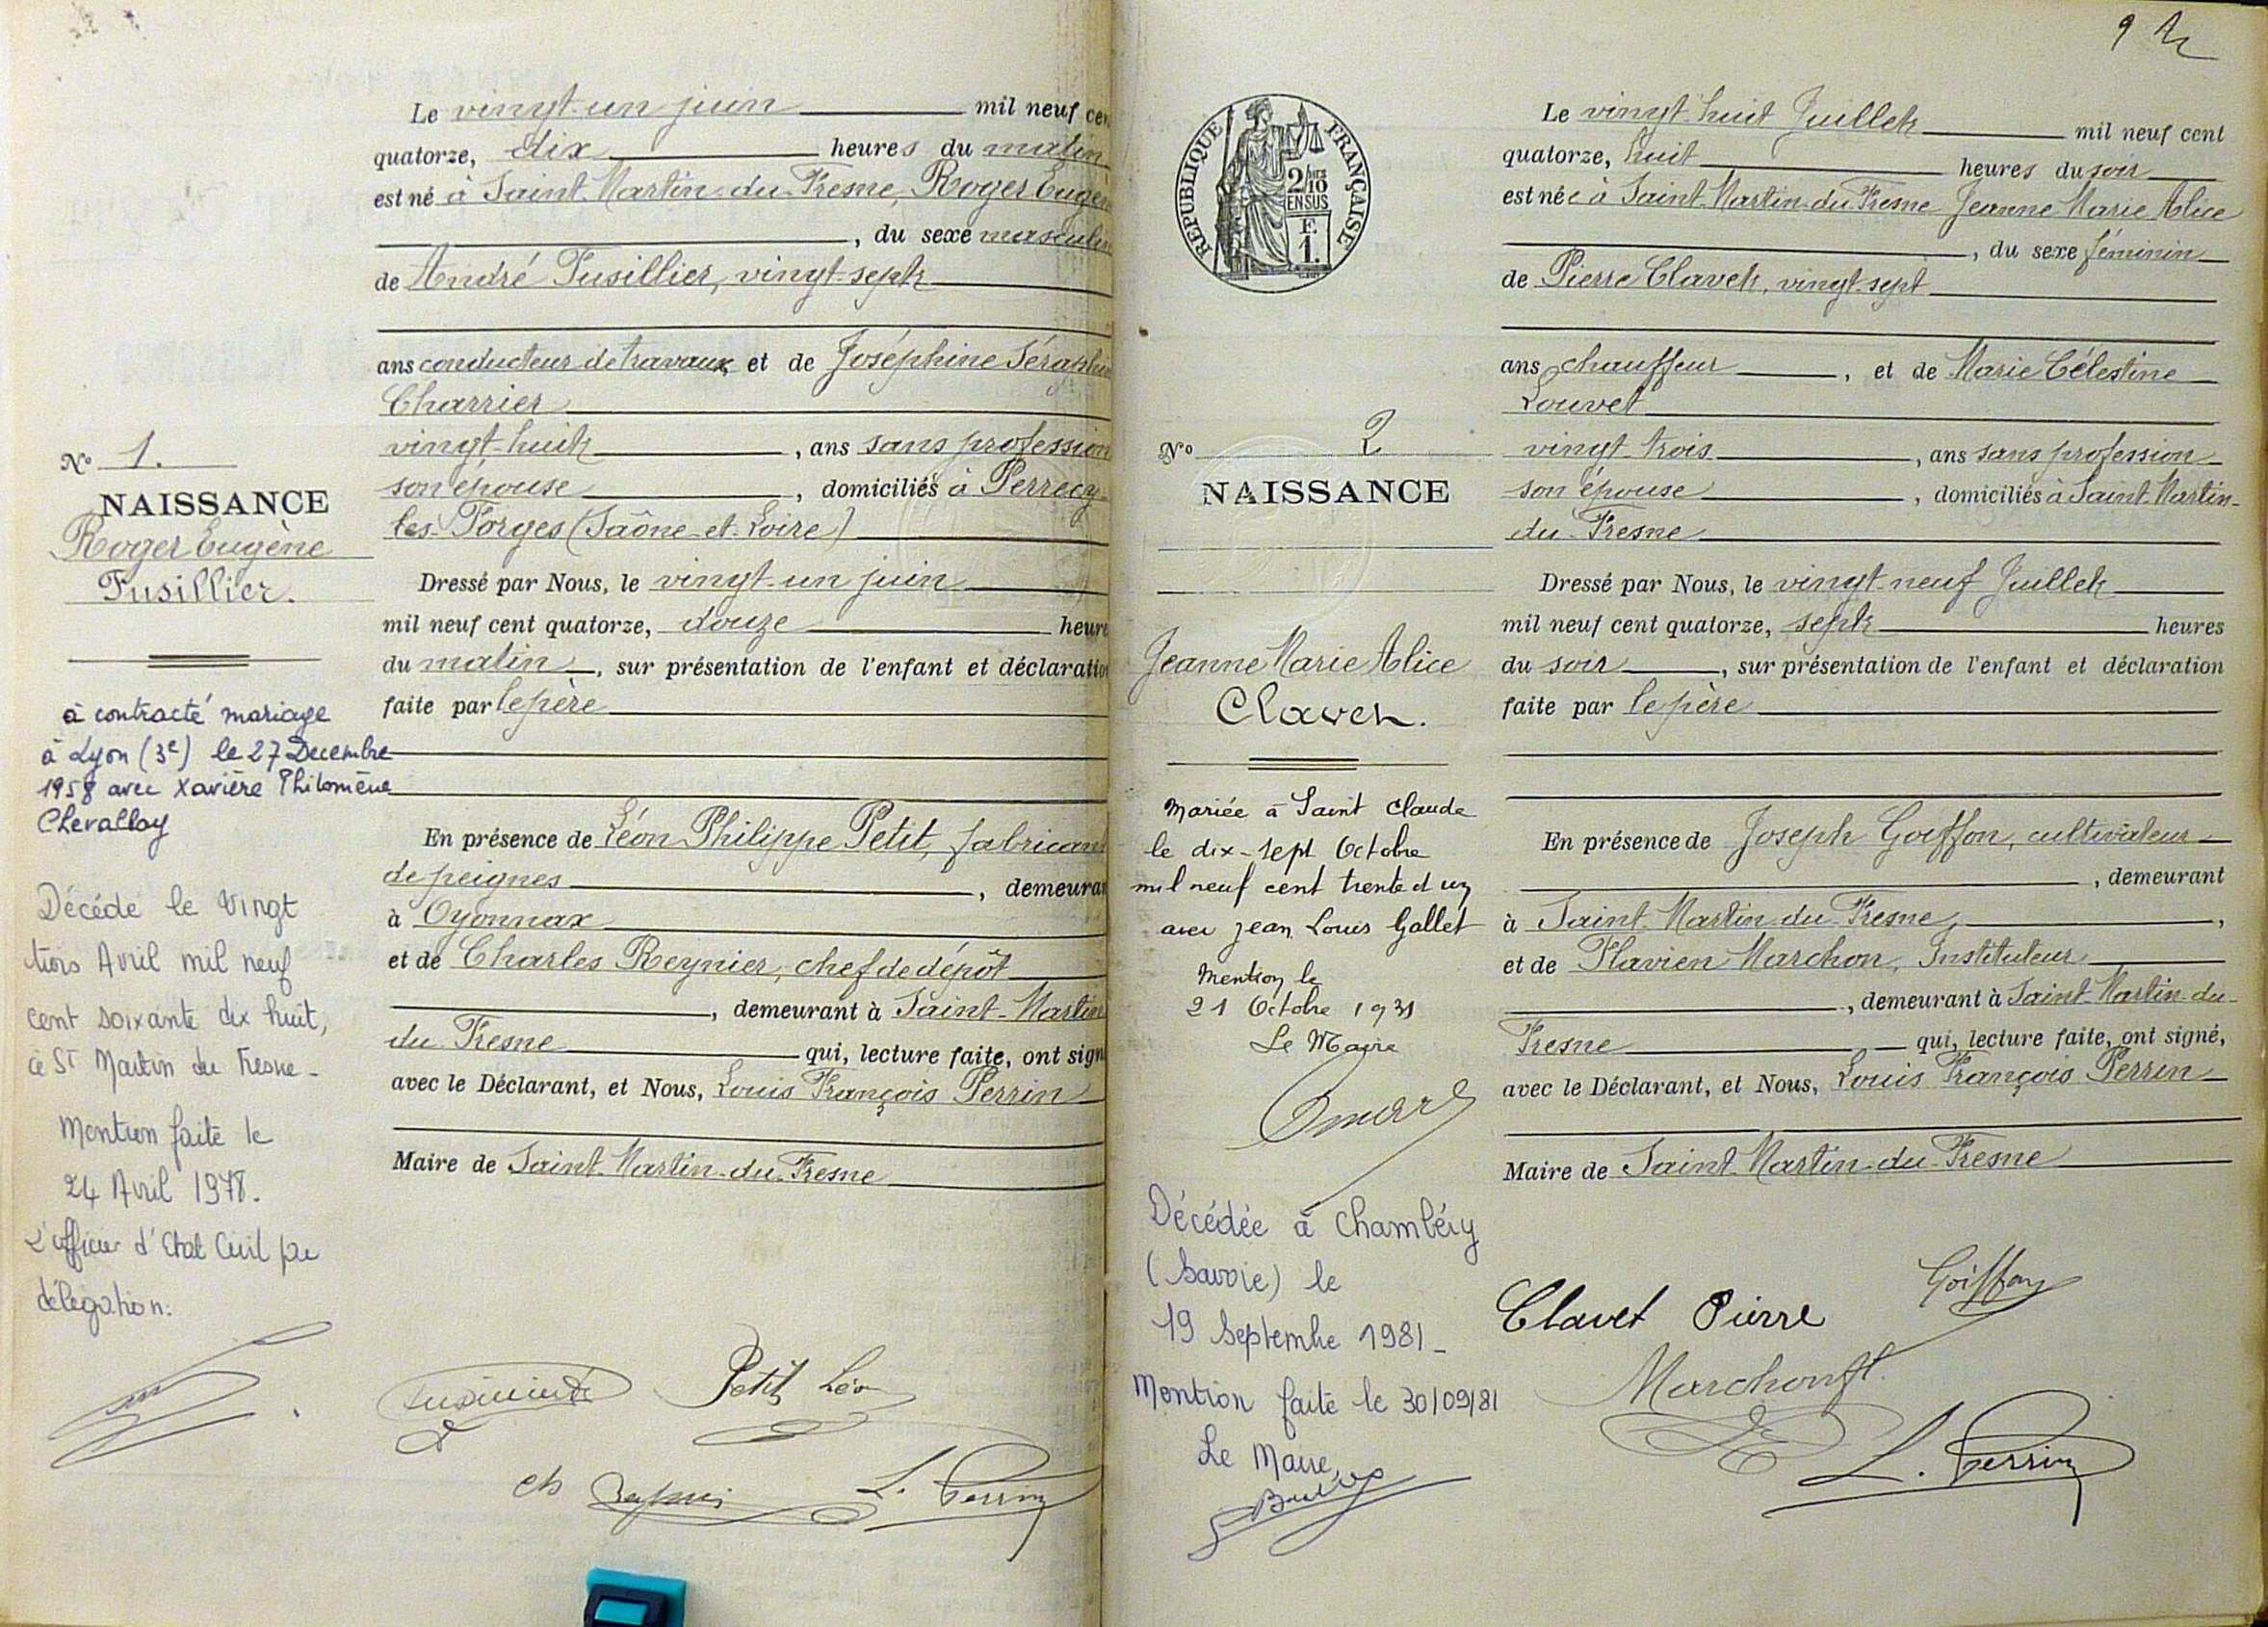 N° 1.
NAISSANCE
Roger Eugène
Fusillier.
à contracté mariage
à Lyon (3e) le 27 Decembre
1958 avec Xavière Philomène
Chevallay
Décédé le Vingt
trois Avril mil neuf
cent soixante dix huit,
à St Martin du Fresne -
Mention faite le
24 Avril 1978.
L'officier d'Etat Civil par
délégation.
Le vingt-un juin mil neuf cen
quatorze, dix heures du matin
est né à Saint-Martin-du-Fresne, Roger Eugèn
, du sexe masculin
de André Fusillier, vingt-sept
ans conducteur de travaux, et de Joséphine Séraphin
Charrier
vingt-huit, ans sans profession
son épouse, domiciliés à Perrecy-
les-Forges (Saône-et-Loire)
Dressé par Nous, le vingt-un juin
mil neuf cent quatorze, douze heure
du matin, sur présentation de l'enfant et déclaratio
faite par le père
En présence de Léon Philippe Petit, fabricant
de peignes, demeuran
à Oyonnax
et de Charles Reynier, chef de dépôt
, demeurant à Saint-Martin
du Fresne qui, lecture faite, ont sign
avec le Déclarant, et Nous, Louis François Perrin
Maire de Saint-Martin-du-Fresne
Petit Léon
Ch Reynier L. Perrin
9
REPUBLIQUE FRANÇAISE
2/10
EN SUS
F.
1.
N° 2
NAISSANCE
Jeanne Marie Alice
Clavet.
Mariée à Saint Claude
le dix-sept Octobre
mil neuf cent trente et un
avec Jean Louis Gallet
Mention le
21 Octobre 1931
Le Maire
Décédée à Chambéry
(Savoie) le
19 Septembre 1981 -
Mention faite le 30/09/81
Le Maire
Le vingt-huit Juillet mil neuf cent
quatorze, huit heures du soir
est née à Saint-Martin-du-Fresne Jeanne Marie Alice
, du sexe féminin
de Pierre Clavet, vingt-sept
ans chauffeur, et de Marie Célestine
Louvet
vingt-trois, ans sans profession
son épouse, domiciliés à Saint-Martin-
du-Fresne
Dressé par Nous, le vingt-neuf Juillet
mil neuf cent quatorze, sept heures
du soir, sur présentation de l'enfant et déclaration
faite par le père
En présence de Joseph Goiffon, cultivateur
, demeurant
à Saint-Martin-du-Fresne,
et de Flavien Marchon, Instituteur
, demeurant à Saint-Martin-du-
Fresne qui, lecture faite, ont signé,
avec le Déclarant, et Nous, Louis François Perrin
Maire de Saint-Martin-du-Fresne
Goiffon
Clavet Pierre
L. Perrin